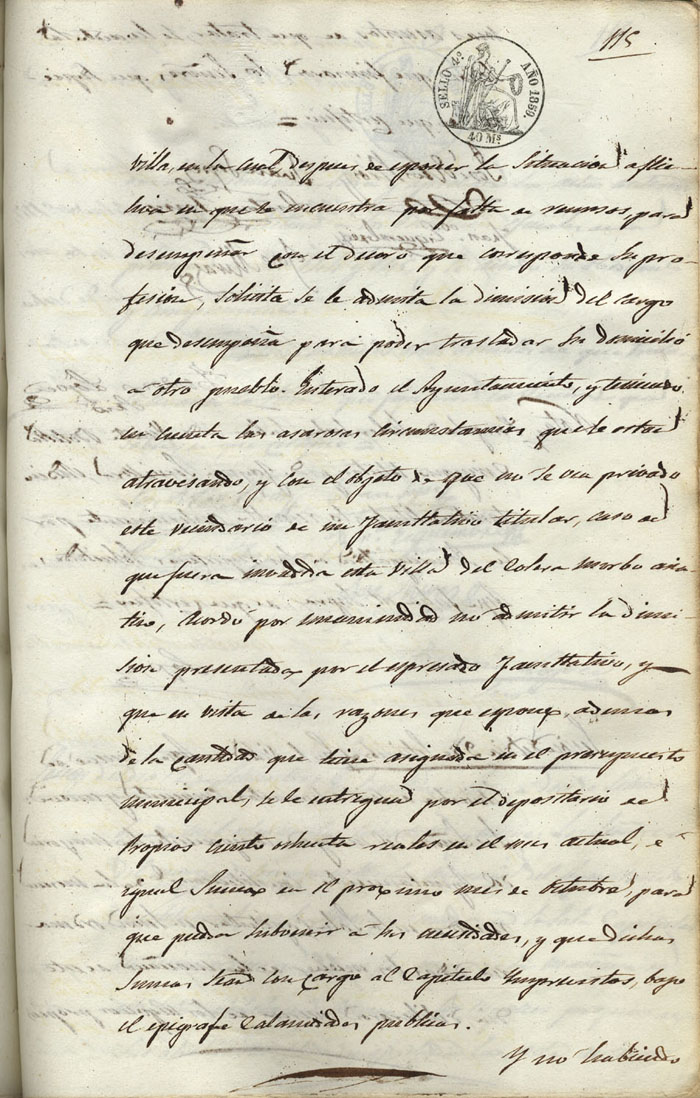 115
SELLO 4º AÑO 1859.
40 Ms
Villa, en la cual despues de esponer la situacion aflic-
tiva en que se encuentra por falta de recursos, para
desempeñar con el decoro que corresponde su pro-
fesion, solicita se le admita la dimision del cargo
que desempeña para poder trasladar su domicilio
á otro pueblo. Enterado el Ayuntamiento, y teniendo
en cuenta las azarosas circunstancias que se estan
atravesando, y con el objeto de que no se vea privado
este vecindario de un Facultativo titular, caso de
que fuera invadida esta Villa del Colera morbo asia-
tico, acordó por unanimidad no admitir la dimi-
sion presentada por el espresado Facultativo, y
que en vista de las razones que espone, ademas
de la cantidad que tiene asignada en el presupuesto
municipal, se le entregue por el depositario de
Propios ciento ochenta reales en el mes actual, é
igual suma en el proximo mes de Octubre, para
que pueda subvenir á sus necesidades, y que dichas
sumas sean con cargo al Capitulo Imprevistos, bajo
el epigrafe Calamidades publicas.
Y no habiendo